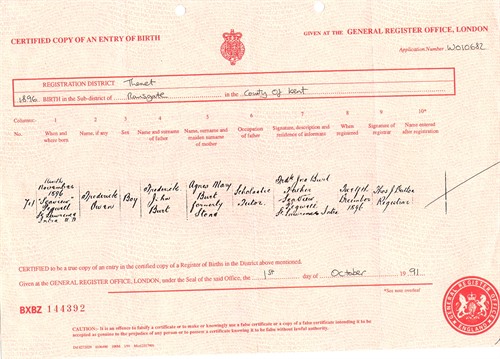 CERTIFIED COPY OF AN ENTRY OF BIRTH
GIVEN AT THE GENERAL REGISTER OFFICE, LONDON
Application Number W010682
REGISTRATION DISTRICT Thanet
1896 BIRTH in the Sub-district of Ramsgate in the County of Kent
Columns:- 1 2 3 4 5 6 7 8 9 10*
No. When and where born Name, if any Sex Name and surname of father Name, surname and maiden surname of mother Occupation of father Signature, description and residence of informant When registered Signature of registrar Name entered after registration
November 1896 "Seaview" Pegwell St Lawrence Intra Frederick Owen Boy Frederick John Burt Agnes Mary Burt formerly Stone Scholastic Tutor Burt Father Seaview Pegwell St Lawrence Intra December 1896 Registrar
CERTIFIED to be a true copy of an entry in the certified copy of a Register of Births in the District above mentioned.
Given at the GENERAL REGISTER OFFICE, LONDON, under the Seal of the said Office, the 1st day of October 1991
*See note overleaf
BXBZ 144392
CAUTION:- It is an offence to falsify a certificate or to make or knowingly use a false certificate or a copy of a false certificate intending it to be
accepted as genuine to the prejudice of any person or to possess a certificate knowing it to be false without lawful authority.
GENERAL REGISTER OFFICE ENGLAND